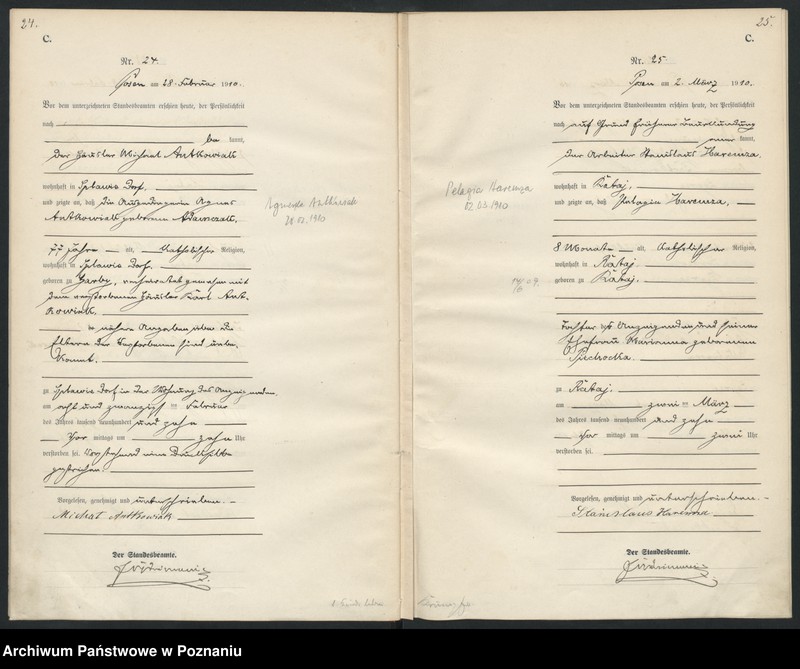 24.
C.
Nr. 24.
Posen am 28. Februar 1910.
Vor dem unterzeichneten Standesbeamten erschien heute, der Persönlichkeit
nach
be kannt,
der Häusler Michael Antkowiak
wohnhaft in Splawie Dorf,
und zeigte an, daß die Ausgedingerin Agnes
Antkowiak geborene Adamczak,
77 Jahre alt, katholischer Religion,
wohnhaft in Splawie Dorf,
geboren zu Garby, verheiratet gewesen mit
dem verstorbenen Häusler Karl Ant-
kowiak,
nähere Angaben über die
Eltern der Verstorbenen sind unbe-
kannt.
zu Splawie Dorf in der Wohnung des Anzeigenden
am acht und zwanzigsten Februar
des Jahres tausend neunhundert und zehn
Vor mittags um zehn Uhr
verstorben sei. Vorstehend eine Druckzeile
gestrichen.
Vorgelesen, genehmigt und unterschrieben.
Michał Antkowiak
Der Standesbeamte.
Agnieszka Antkowiak
28.02.1910
25.
C.
Nr. 25
Posen am 2. März 1910.
Vor dem unterzeichneten Standesbeamten erschien heute, der Persönlichkeit
nach auf Grund früherer Beurkundung
kannt,
der Arbeiter Stanislaus Harenza,
wohnhaft in Rataj,
und zeigte an, daß Pelagia Harenza,
8 Monate alt, katholischer Religion,
wohnhaft in Rataj
geboren zu Rataj,
Tochter des Anzeigenden und seiner
Ehefrau Marianna geborenen
Piechocka.
zu Rataj
am zweiten März
des Jahres tausend neunhundert und zehn
Vor mittags um zwei Uhr
verstorben sei.
Vorgelesen, genehmigt und unterschrieben.
Stanislaus Harenza
Der Standesbeamte.
Pelagia Harenza
02.03.1910
Archiwum Państwowe w Poznaniu